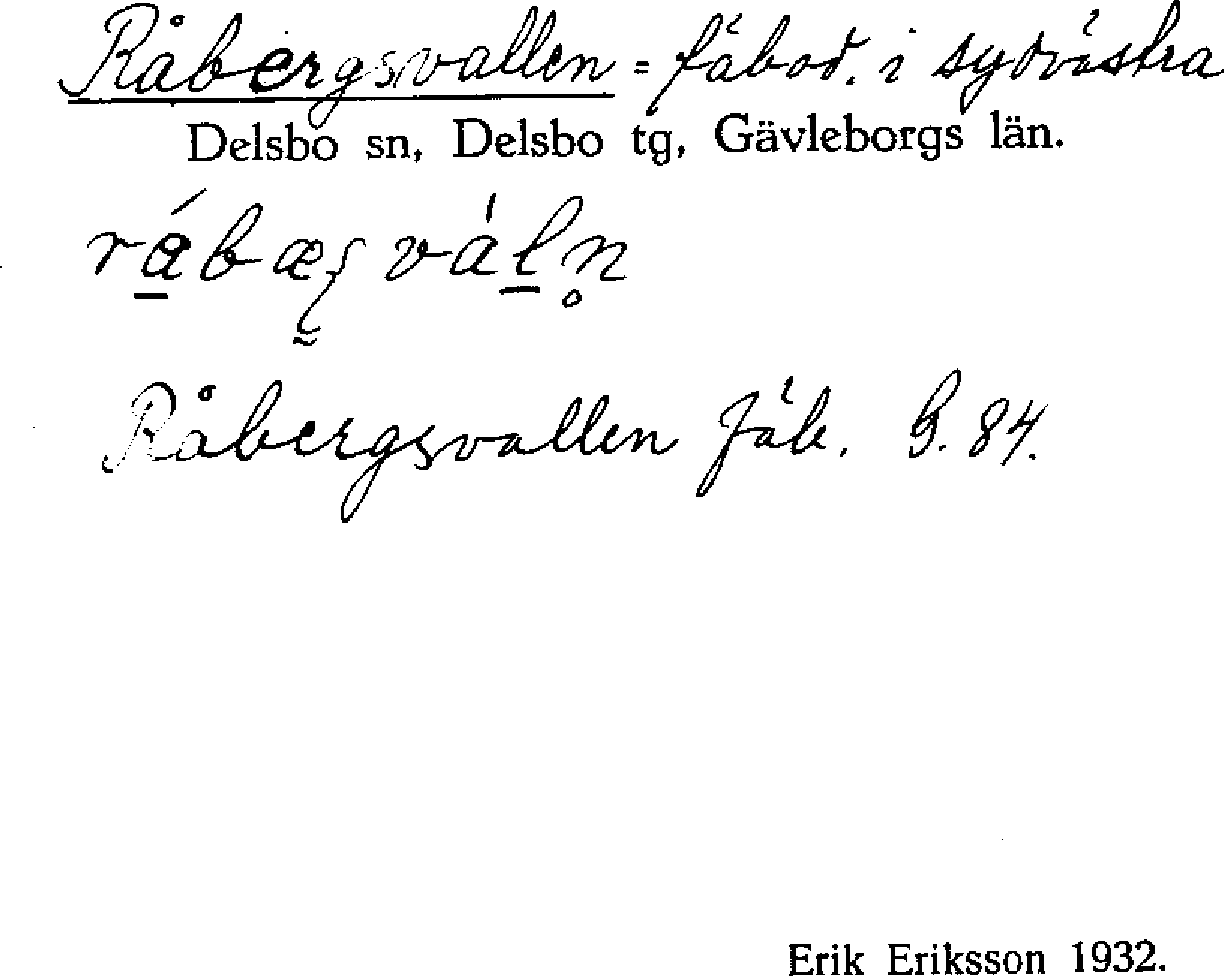 Råbergsvallen = fäbod. i sydvästra
Delsbo sn, Delsbo tg, Gävleborgs län.
Råbergsvallen fäb. G. 84.
Erik Eriksson 1932.